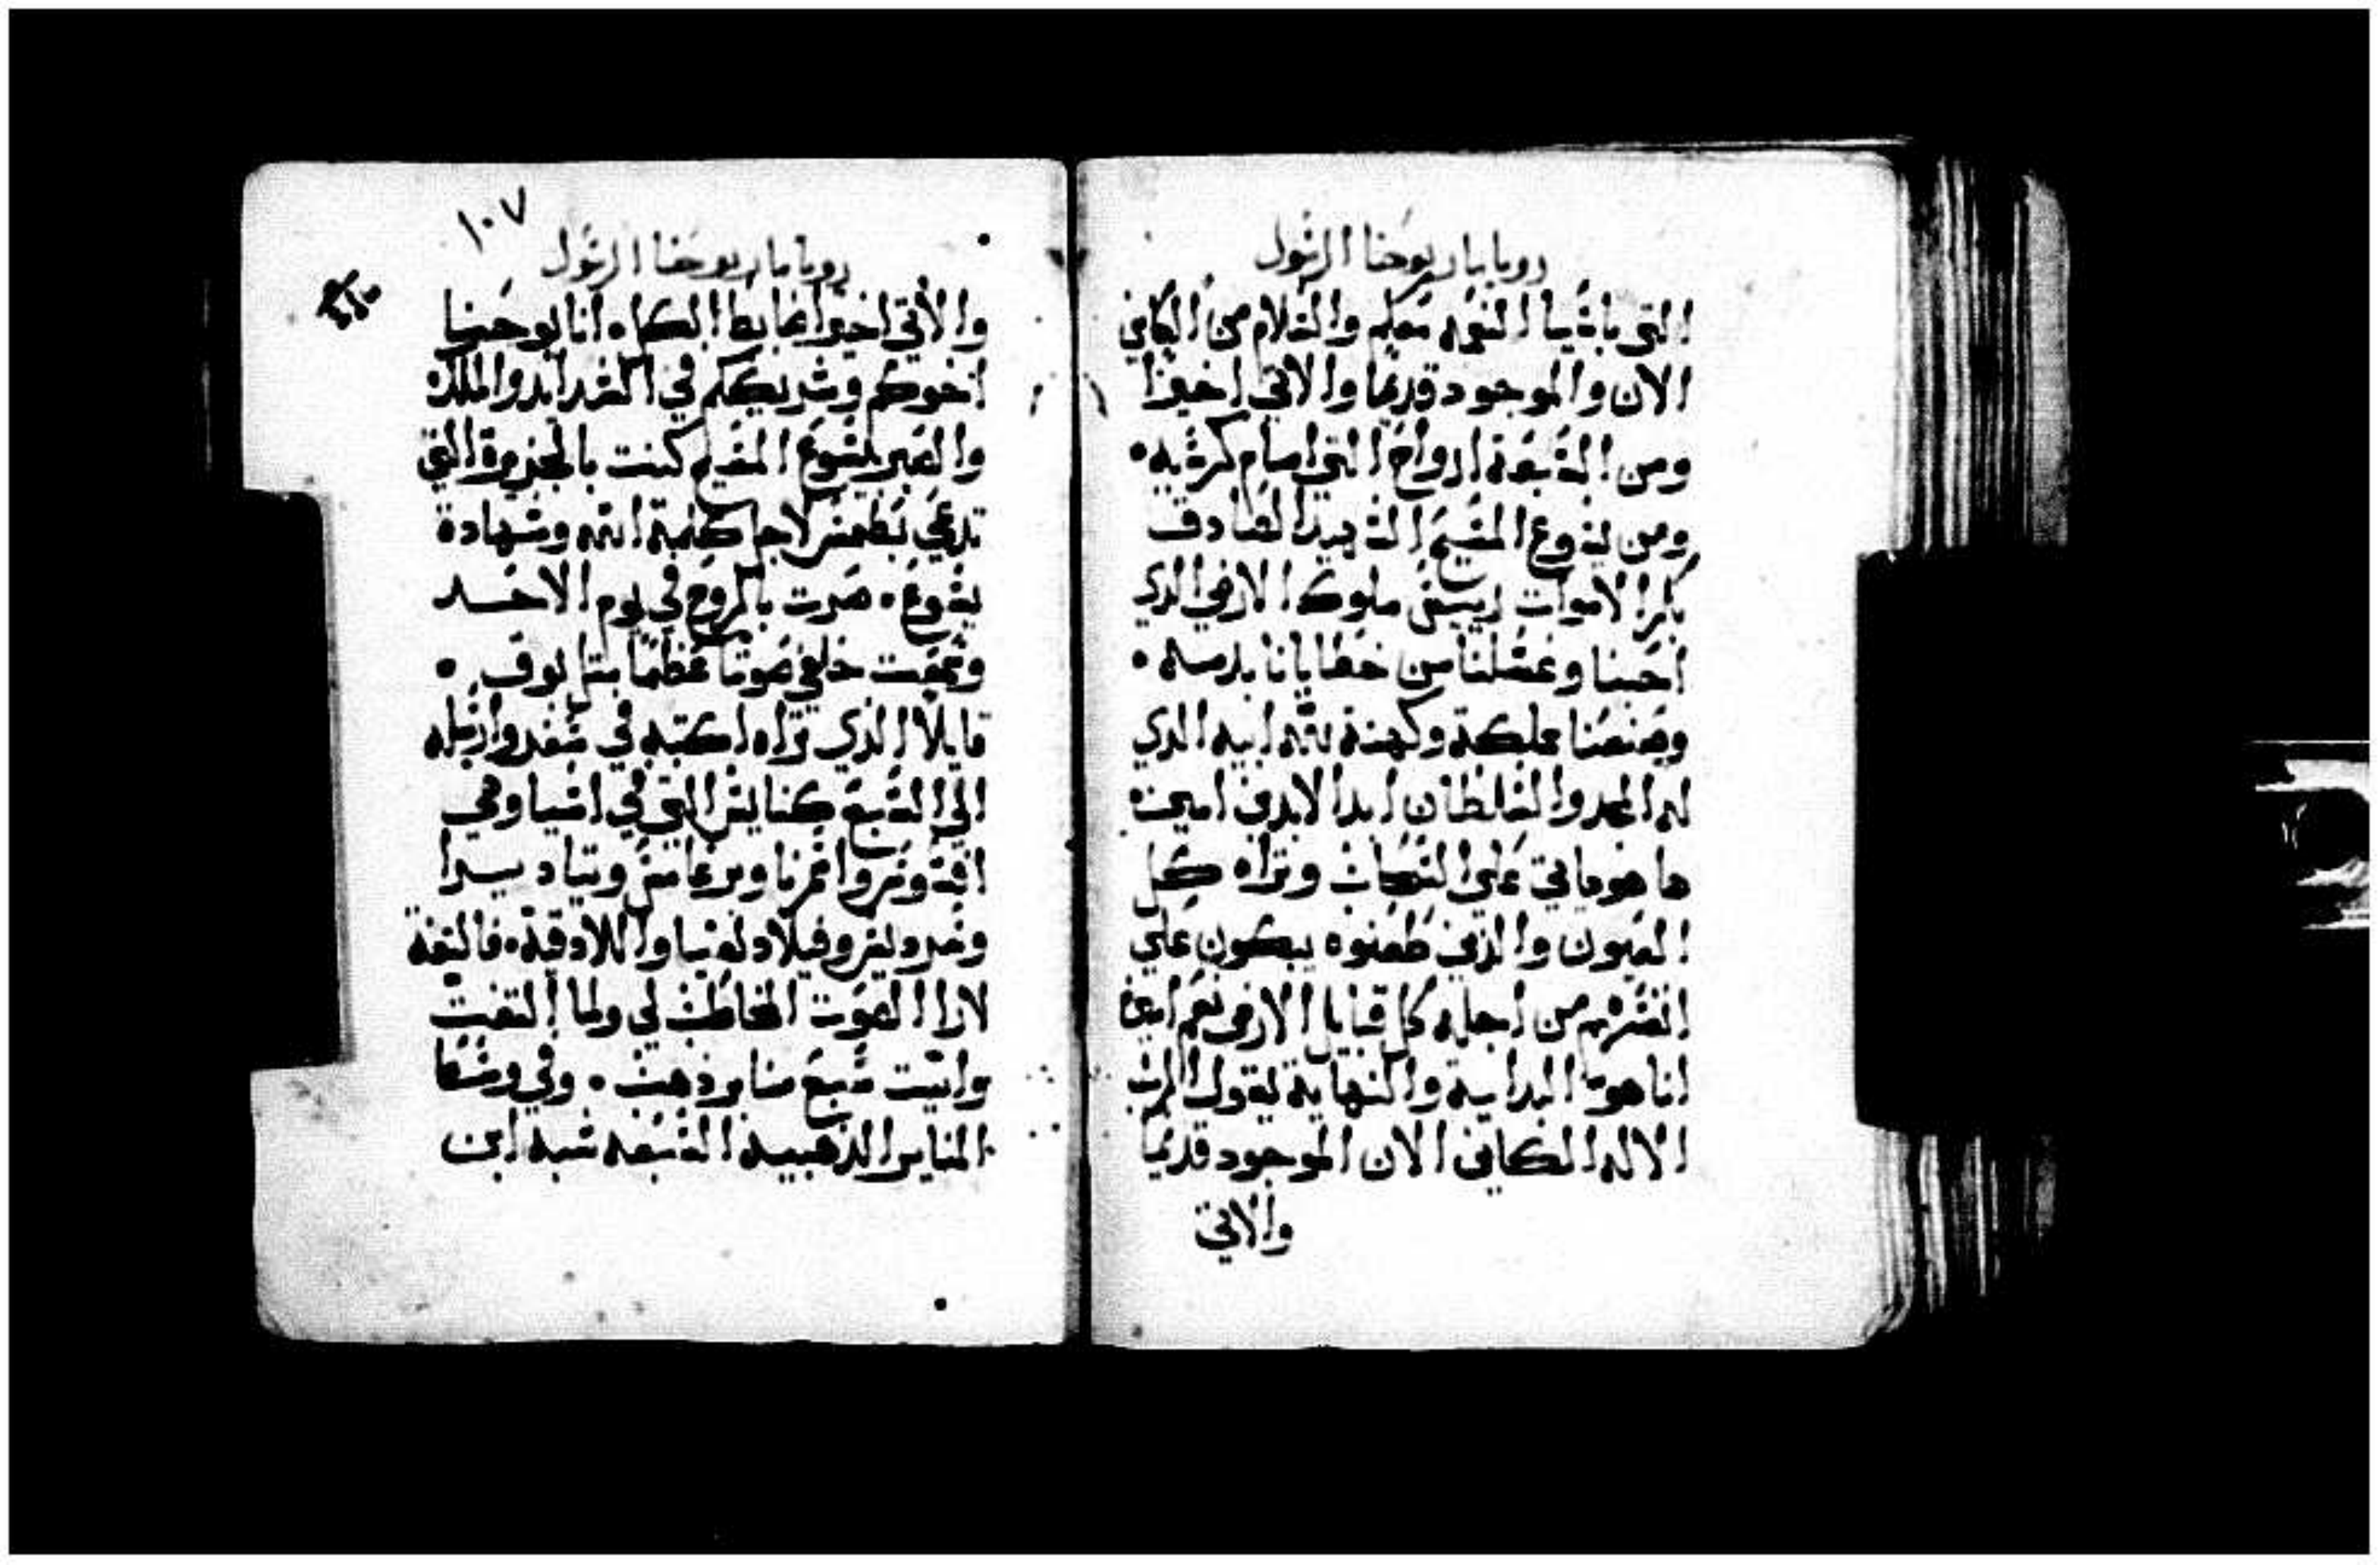 رويا مار يوحنا الرسول
التي باسيا النعمه معكم والسلام من الكاين
الان والموجود قديما والاتي اخيرا
ومن السبعة ارواح التي امام كرسيه ۰
ومن يسوع المسيح الشهيد الصادق
بكر الاموات رييس ملوك الارض الذي
احبنا وغسلنا من خطايانا بدمه ۰
وصنعنا مملكة وكهنة لله ابيه الذي
له المجد والسلطان ابد الابدين امين ۰
ها هو ياتي علي السحاب وتراه كل
العيون والذين طعنوه يبكون علي
انفسهم من اجله كل قبايل الارض نعم امين
انا هو البداية والنهاية يقول الرب
الاله الكاين الان الموجود قديما
والاتي
١٠٧
رويا مار يوحنا الرسول
والاتي اخيرا ضابط الكل ۰ انا يوحنا
اخوكم وشريككم في الشدايد والملك
والصبر ليسوع المسيح كنت بالجزيرة التي
تدعي بطمس لاجل كلمة الله وشهادة
يسوع ۰ صرت بالروح في يوم الاحد
وسمعت خلفي صوتا عظيما مثل بوق ۰
قايلا الذي تراه اكتبه في سفر وارسله
الي السبع كنايس التي في اسيا وهي
افسوس وازمرنا وبرغامس وتياديرا
وسرديس وفيلادلفيا واللادقية ۰ فالتفت
لارا الصوت المخاطب لي ولما التفت
رايت سبع مناير ذهب ۰ وفي وسط
المناير الذهبيه السبعه شبه ابن